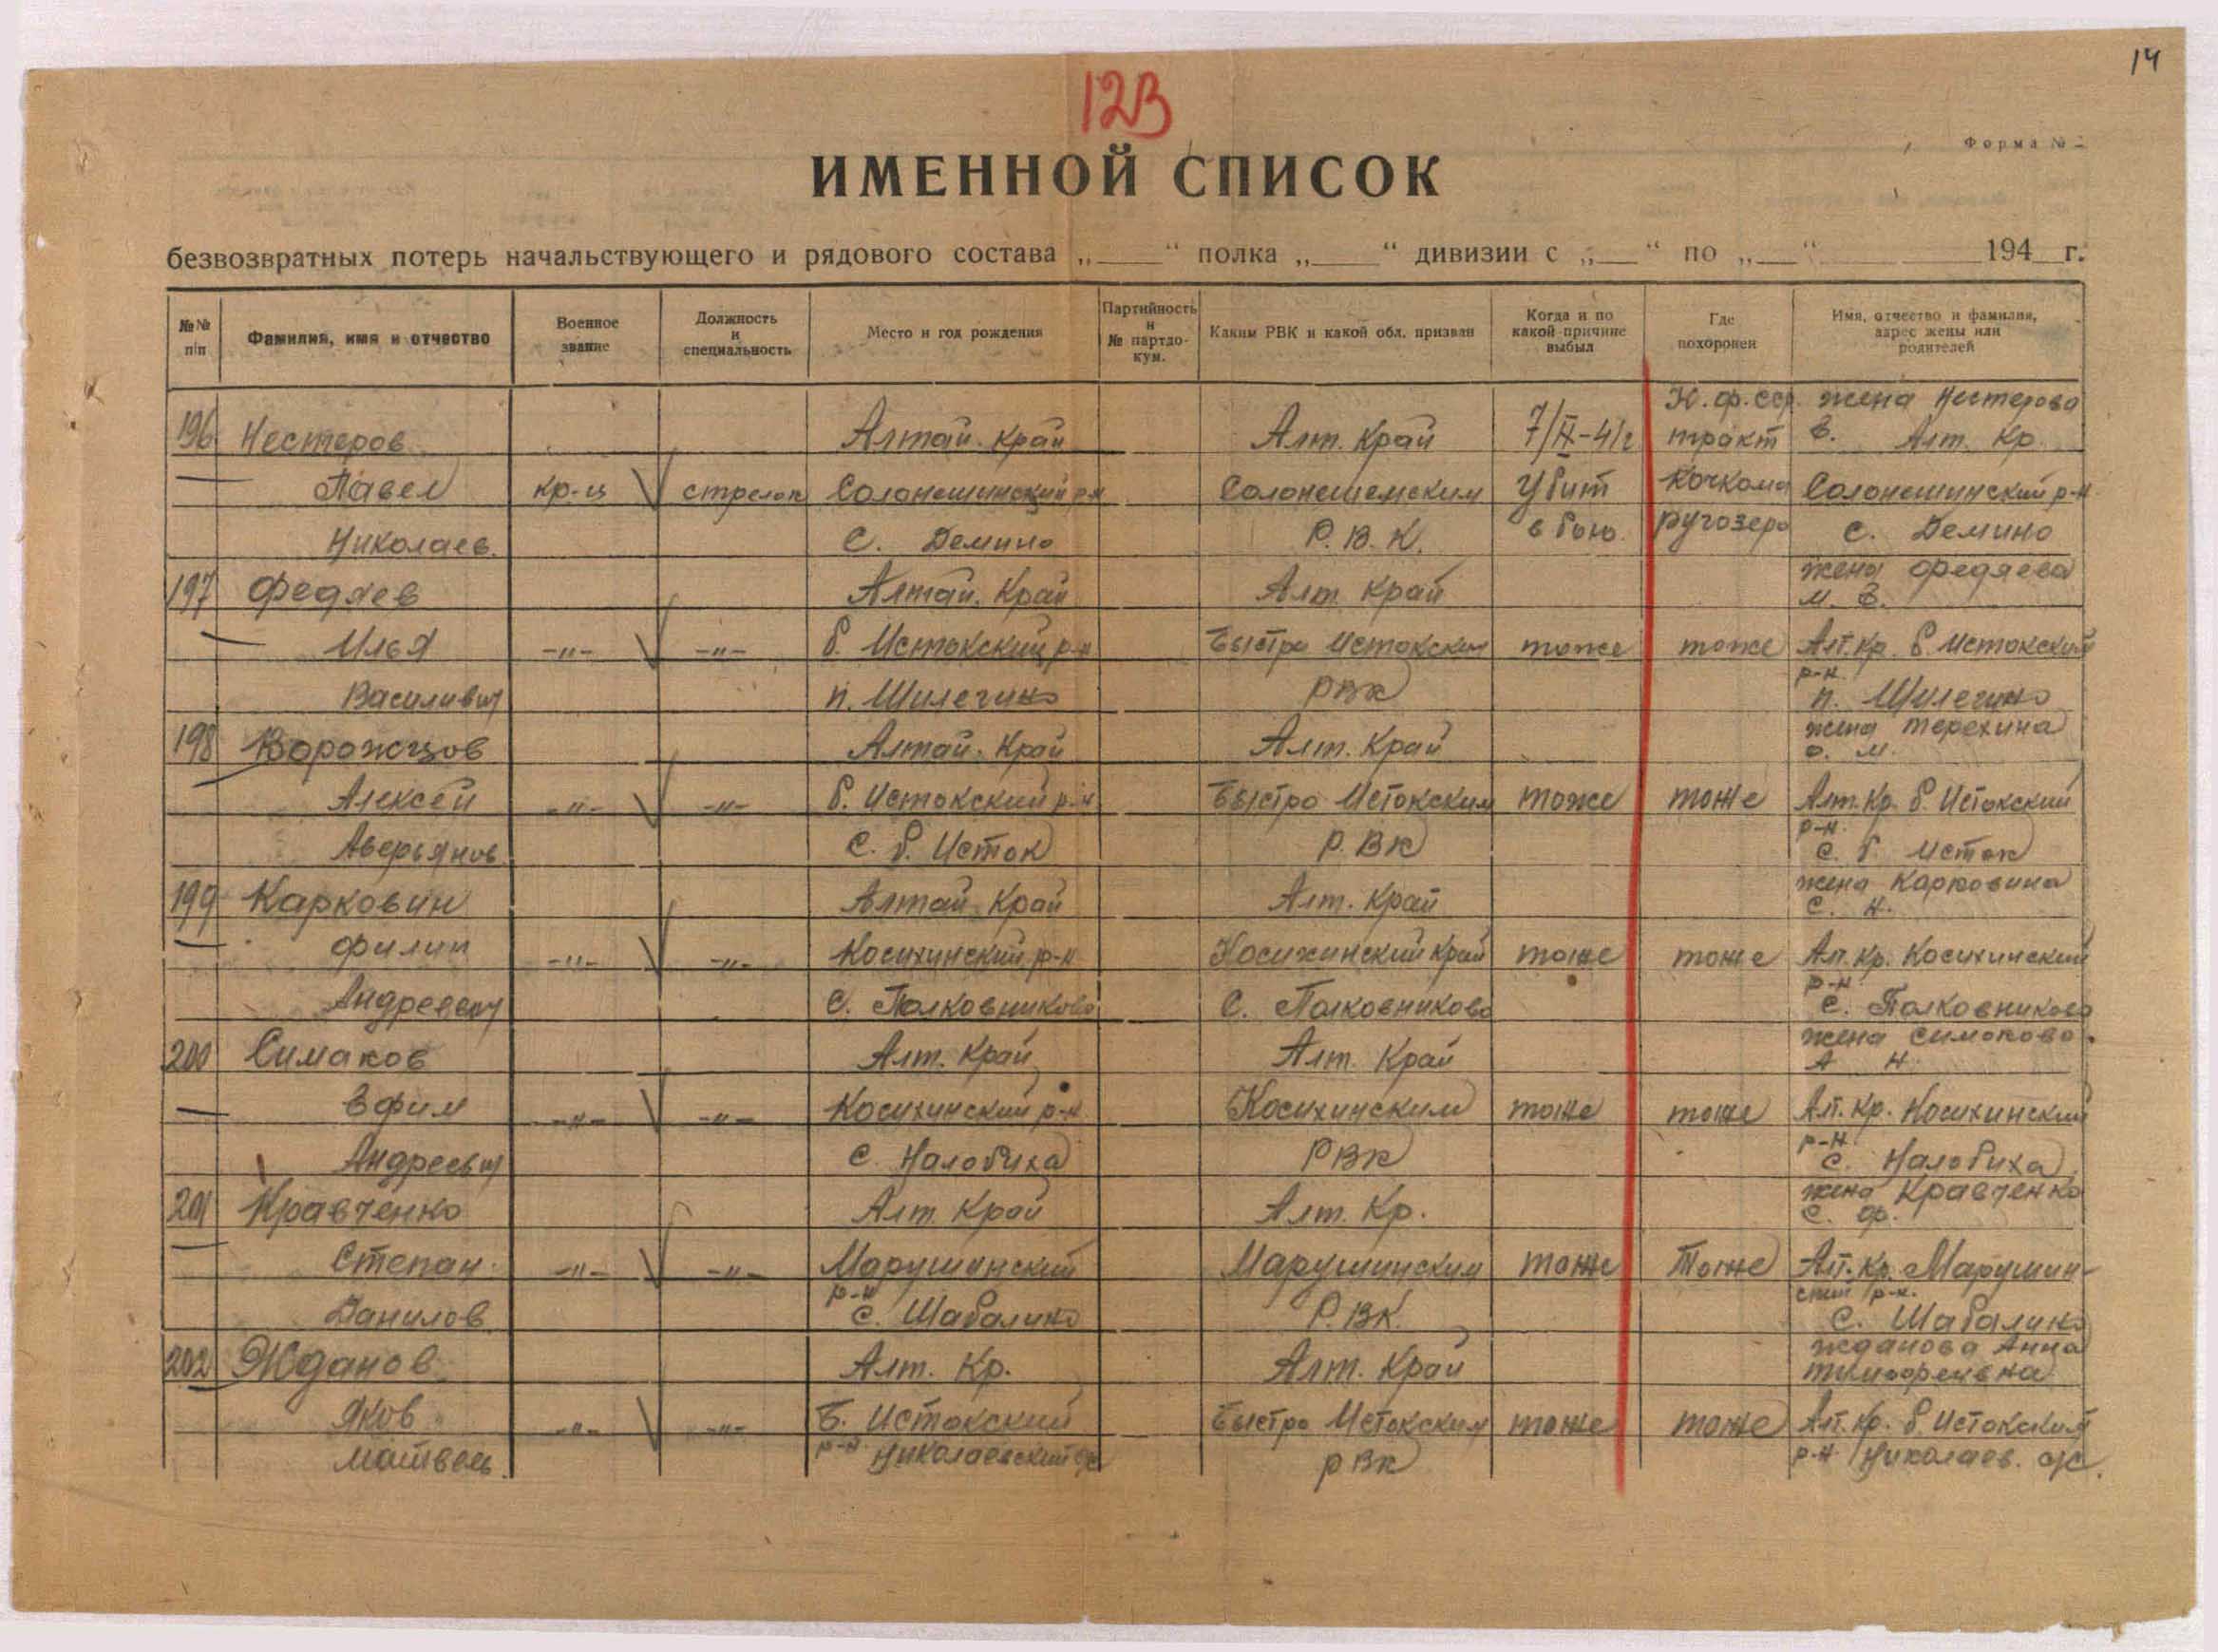 14
123
Форма №
ИМЕННОЙ СПИСОК
безвозвратных потерь начальствующего и рядового состава „___“ полка „___“ дивизии с „__“ по „__“ ______ 194__г.
№№ п/п | Фамилия, имя и отчество | Военное звание | Должность и специальность | Место и год рождения | Партийность и № партдокум. | Каким РВК и какой обл. призван | Когда и по какой причине выбыл | Где похоронен | Имя, отчество и фамилия, адрес жены или родителей
К.ф.сср. жена Нестерова
196 Нестеров Алтай. край Алт. край 7/IX-41г тракт Е. Алт. Кр.
Павел кр-ц стрелок Солонешинский р-н Солонешемским Убит Кочкома Солонешинский р-н
Николаев. с. Демино Р.В.К. в бою. ругозеро с. Демино
жена Федяева
197 Федяев Алтай. Край Алт. край М. Е.
Илья -"- -"- б. Истокский р-н Быстро Истокским тоже тоже Алт. кр. б. Истокский р-н
Василивич п. Шилегино РВК п. Шилегино
жена Терехина
198 Ворожцов Алтай. Край Алт. Край О. М.
Алексей -"- -"- б. Истокский р-н Быстро Истокским тоже тоже Алт. Кр. б. Истокский р-н.
Аверьянов с. б. Исток Р.ВК с. б. Исток
жена Карковина
199 Карковин Алтай Край Алт. край С. Н.
Филип -"- -"- Косихинский р-н Косихинский край тоже тоже Алт. кр. Косихинский р-н
Андреевич с. Полковниково с. Полковниково с. Полковниково
жена Симокова
200 Симаков Алт. Край Алт. Край А Н.
Ефим -"- -"- Косихинский р-н Косихинским тоже тоже Алт. кр. Косихинский р-н
Андреевич с Налобиха РВК с. Налобиха
жена Кравченко
201 Кравченко Алт. Край Алт. Кр. С. Ф.
Степан -"- -"- Марушинский р-н Марушинским тоже Тоже Алт. кр. Марушинский р-н.
Данилов с. Шабалино Р.ВК. с. Шабалино
Жданова Анна
202 Жданов Алт. Кр. Алт. Край Тимофеивна
Яков -"- -"- Б. Истокский Быстро Истокским тоже тоже Алт. кр. б. Истокский
Матвеев. р-н Николаевский с/с РВК р-н Николаев. с/с.